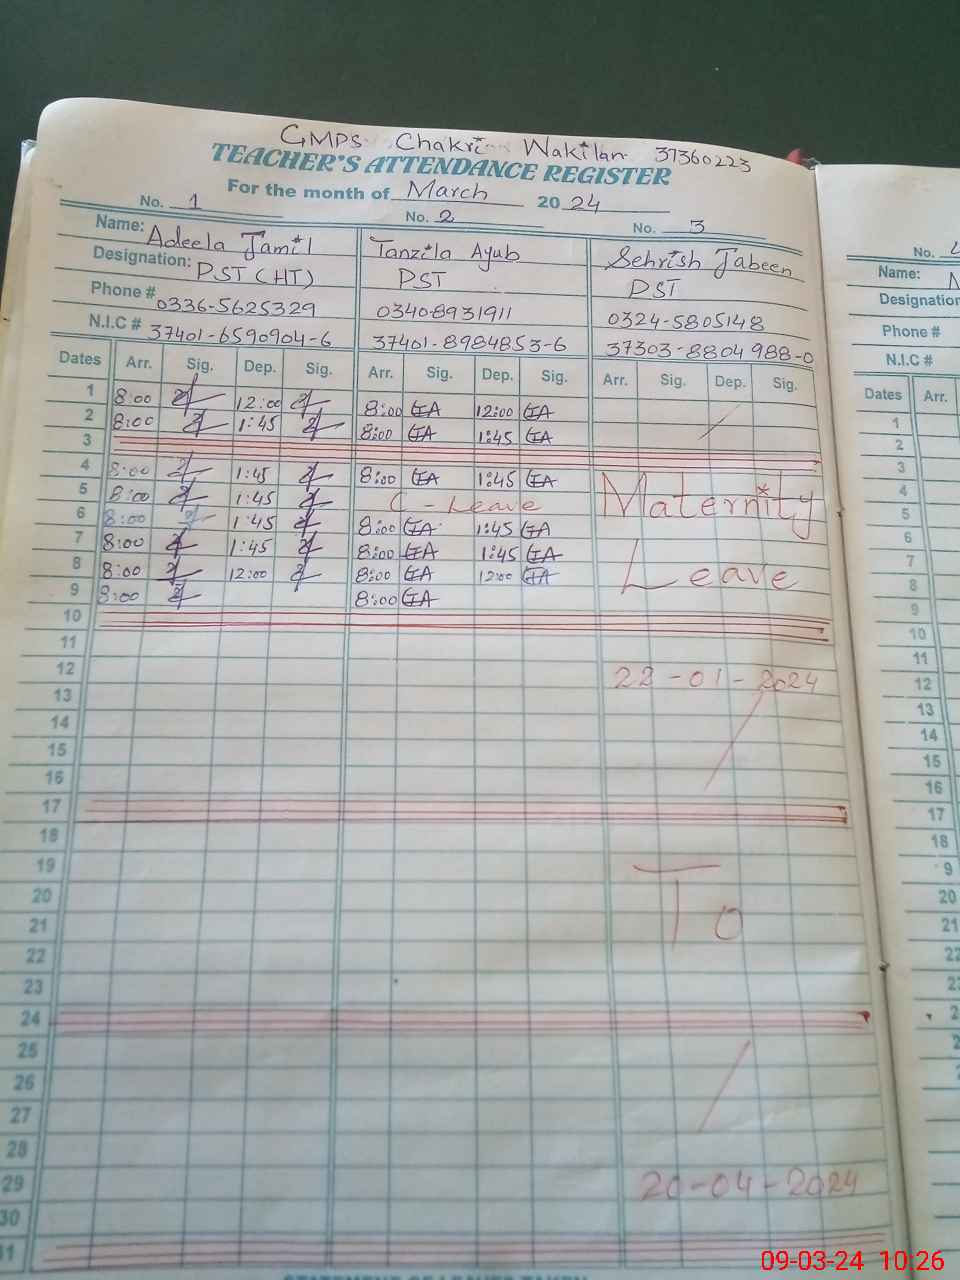 GMPS Chakri Wakilan 37360223
TEACHER'S ATTENDANCE REGISTER
For the month of March 2024
No. 1 No. 2 No. 3
Name: Adeela Jamil Tanzila Ayub Sehrish Jabeen
Designation: PST (HT) PST PST
Phone # 0336-5625329 0340-8931911 0324-5805148
N.I.C # 37401-6590904-6 37401-8984853-6 37303-8804988-0
Dates Arr. Sig. Dep. Sig. Arr. Sig. Dep. Sig. Arr. Sig. Dep. Sig.
1 8:00 12:00 8:00 12:00
2 8:00 1:45 8:00 1:45
3
4 8:00 1:45 8:00 1:45 Maternity
5 8:00 1:45 C - Leave
6 8:00 1:45 8:00 1:45
7 8:00 1:45 8:00 1:45 Leave
8 8:00 12:00 8:00 12:00
9 8:00 8:00
10
11
12 22-01-2024
13
14
15
16
17
18
19
20 To
21
22
23
24
25
26
27
28
29 20-04-2024
30
31
No. 4
Name:
Designation
Phone #
N.I.C #
Dates Arr.
1
2
3
4
5
6
7
8
9
10
11
12
13
14
15
16
17
18
9
20
21
22
09-03-24 10:26